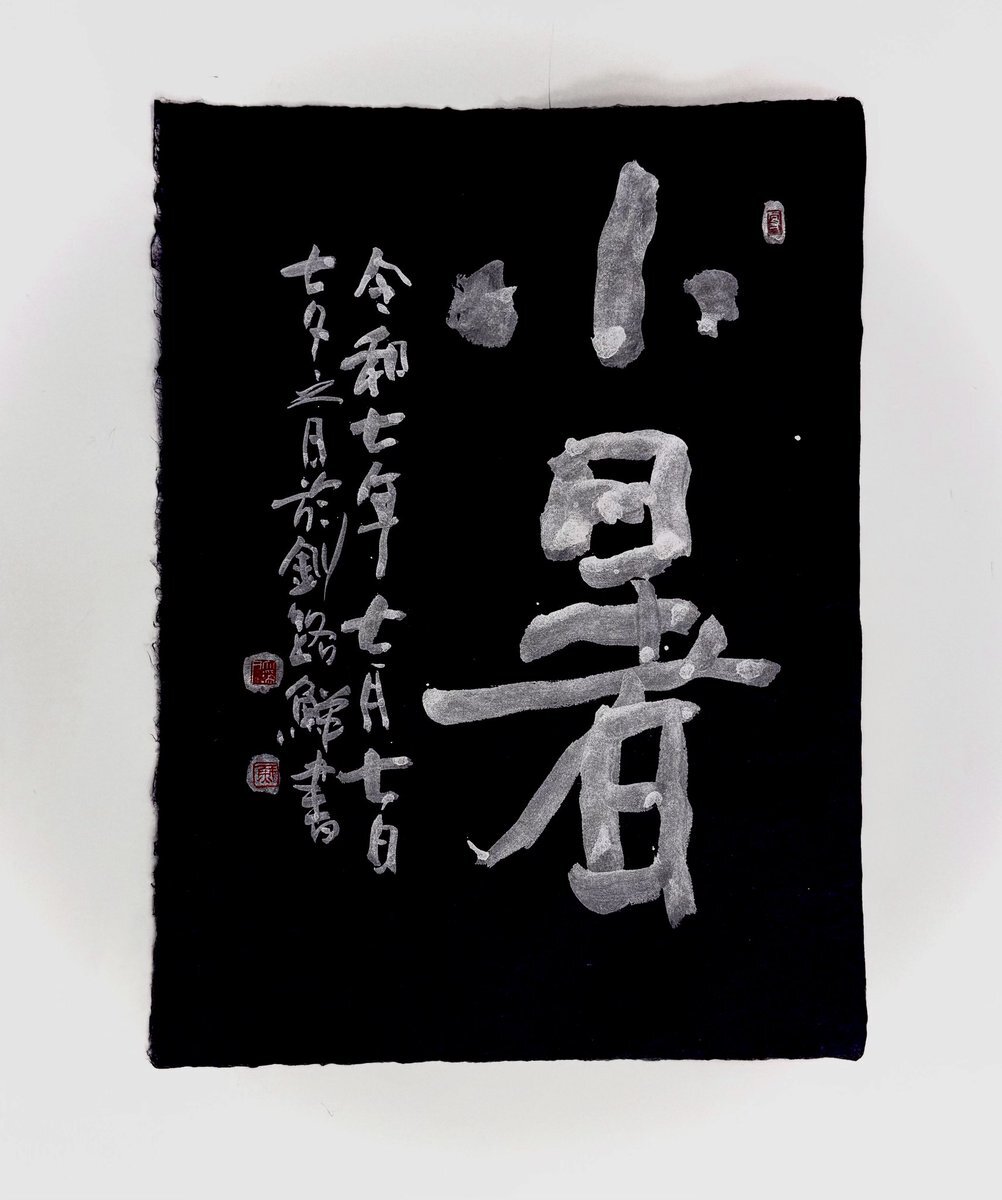 小暑
令和七年七月七日
七夕之日於釧路鮮書